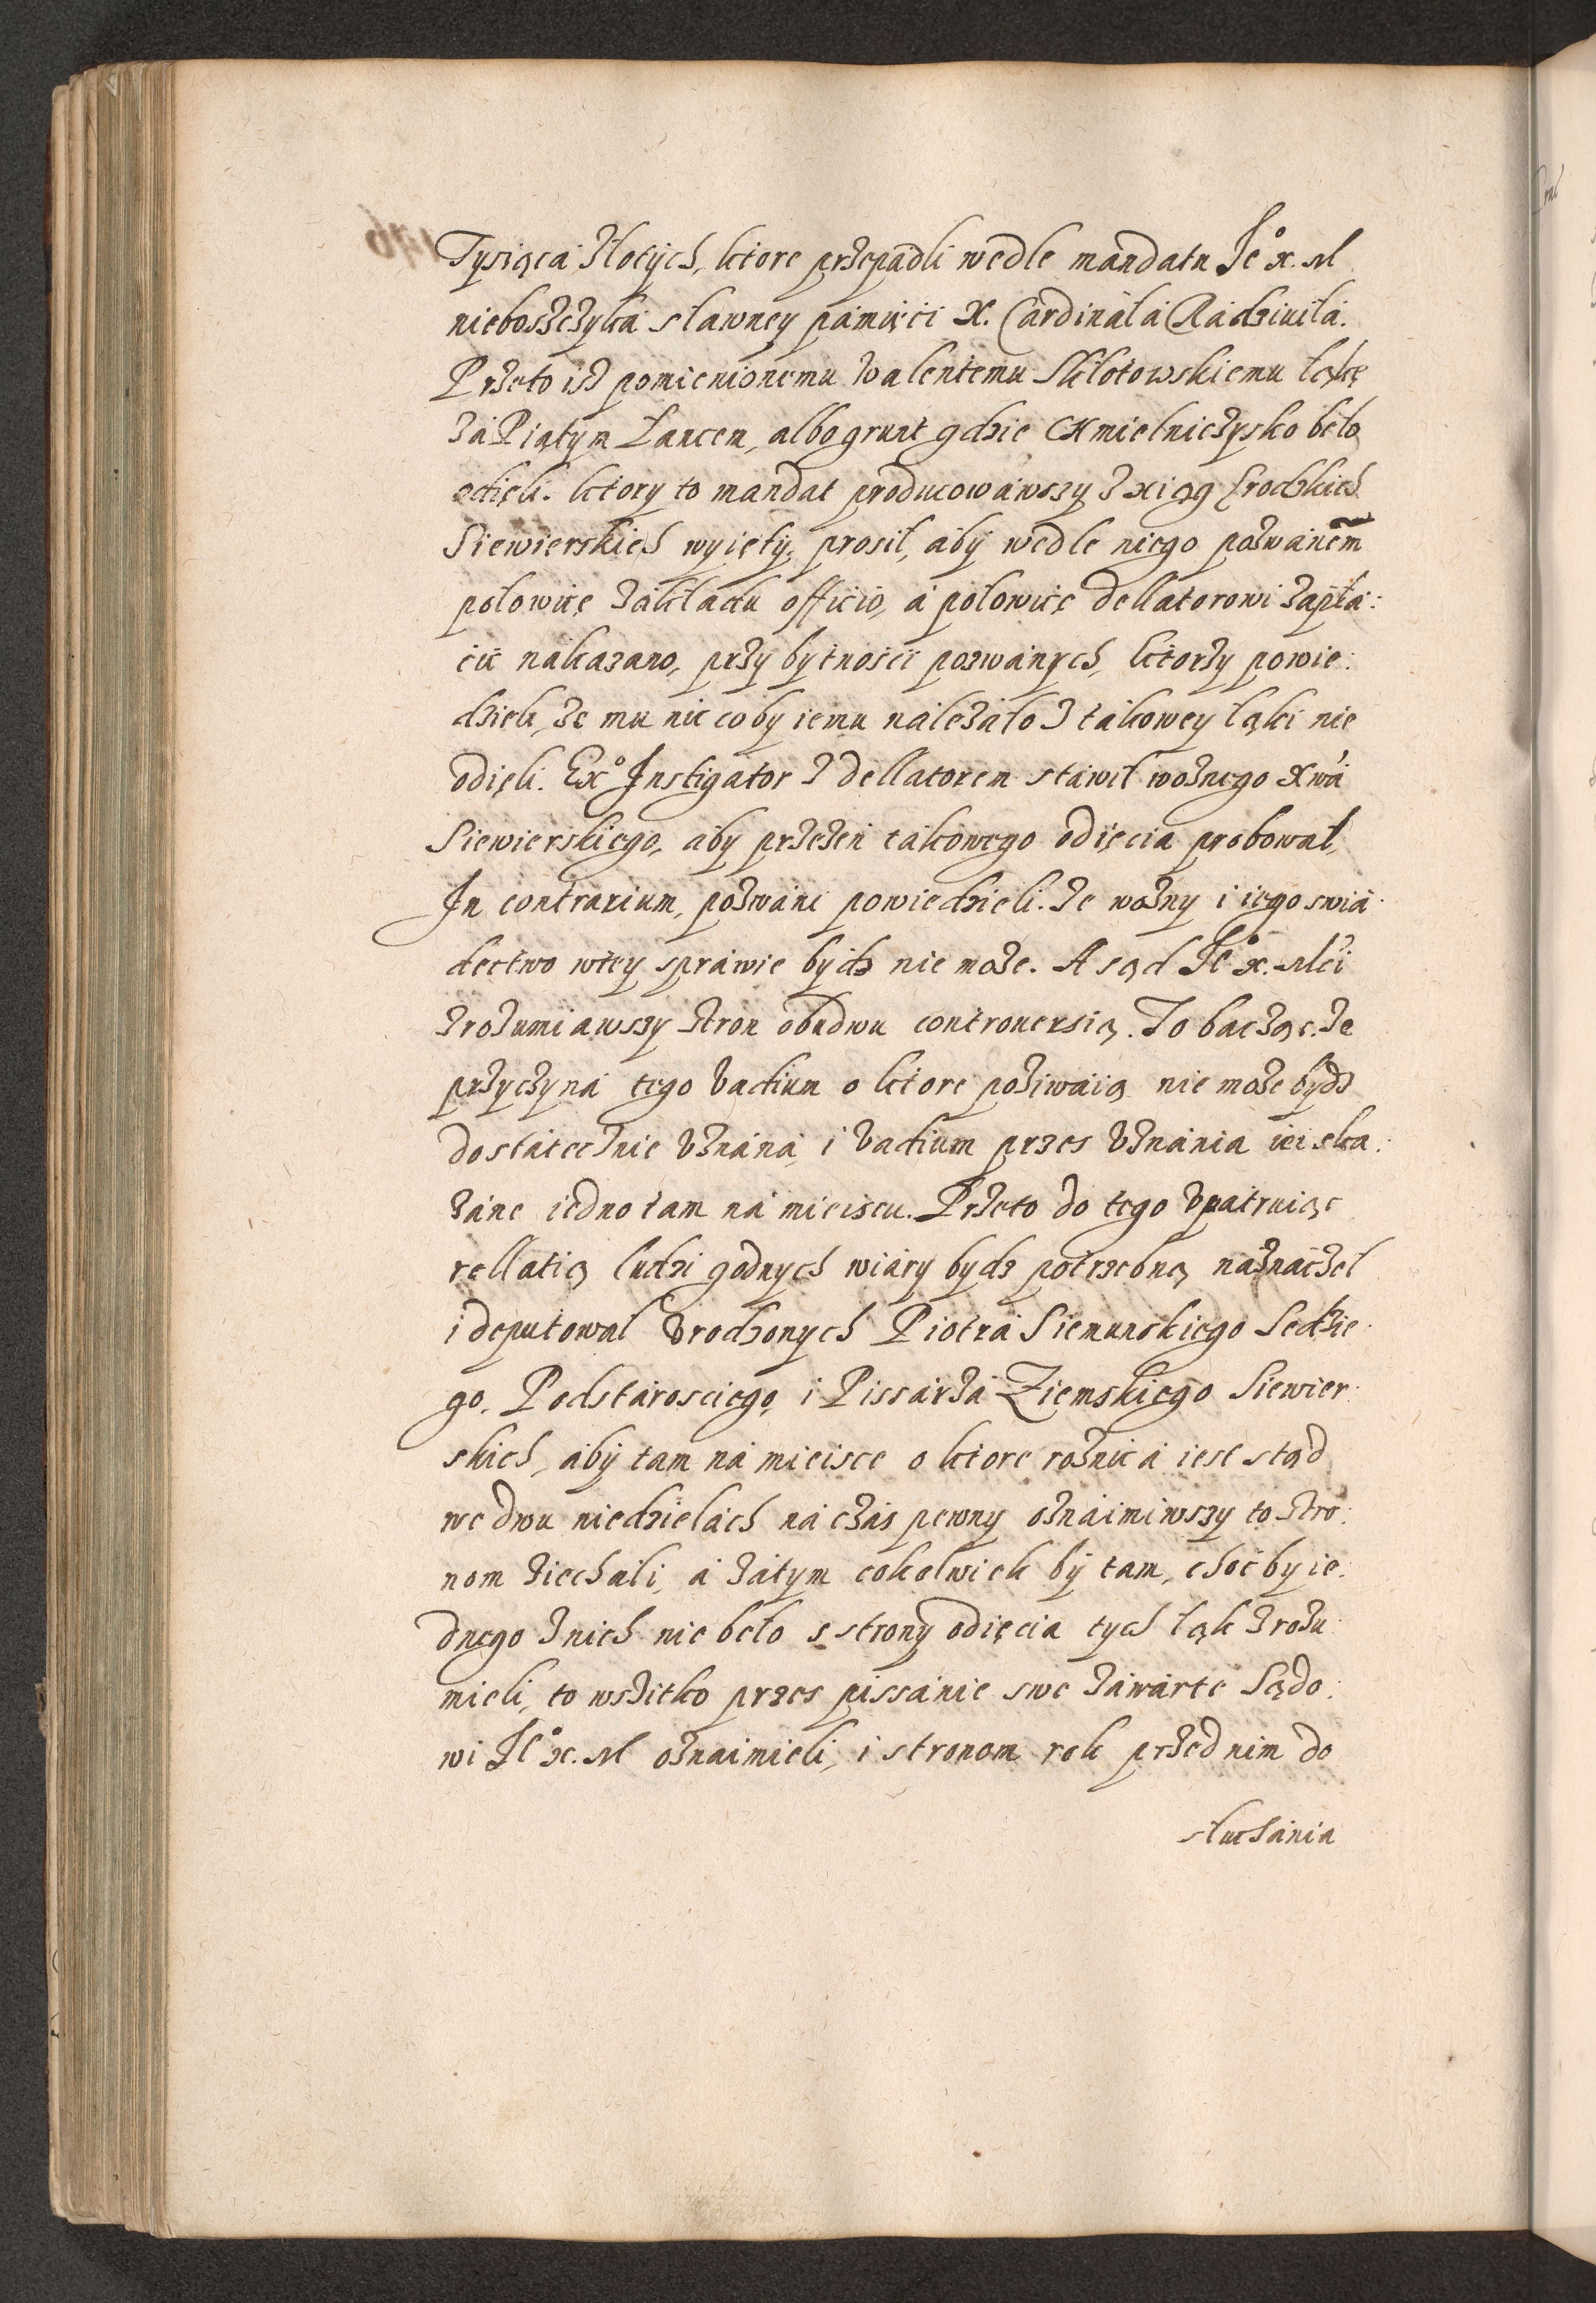 Tysiąca Złotych, ktore przepadli wedle mandatu Je° x. M
nieboszczyka sławney pamięci X. Cardinała Radziuiła.
Przeto isz pomienionemu Walentemu Skłotowskiemu łąkę
za Piątym Łancem, albo grunt gdzie Chmielniczysko beło
odięli. ktory to mandat producowawszy z xiąg Grodzkich
Siewierskich wyięty, prosił, aby wedle niego pozwanem
połowicę zakładu officio, a połowicę dellatorowi zapła:
cić nakazano, przy bytności pozwanych, ktorzy powie:
dzieli, że mu nic coby iemu należało z takowey łąki nie
odięli. Ex° Instigator z dellatorem stawił woznego Xwa
Siewierskiego, aby przezeń takowego odięcia probował,
In contrarium, pozwani powiedzieli. że wozny i iego swia
dectwo wtey sprawie bydz nie może. A sąd Je° x. Mći
zrozumiawszy stron obudwu controuersią. To bacząc. że
przyczyna tego vadium o ktore poziwaią nie może bydz
dostatecznie vznana, i vadium przes vznania iei ska:
zane iedno tam na mieiscu. Przeto do tego vpatruiąc
rellatią ludzi godnych wiary bydz potrzebną naznaczel
i deputował vrodzonych Piotra Siemunskiego Sedzie
go, Podstarosciego, i Pissarza Ziemskiego Siewier:
skich, aby tam na mieisce o ktore roznica iest stąd
we dwu niedzielach na czas pewny oznaimiwszy to stro:
nom ziechali, a zatym cokolwiek by tam, choć by ie:
dnego znich nie beło s strony odięcia tych łąk zrozu
mieli, to wszitko przes pissanie swe zawarte Sądo:
wi Je° x. M oznaimieli, i stronom rok przed nim do
słuchania